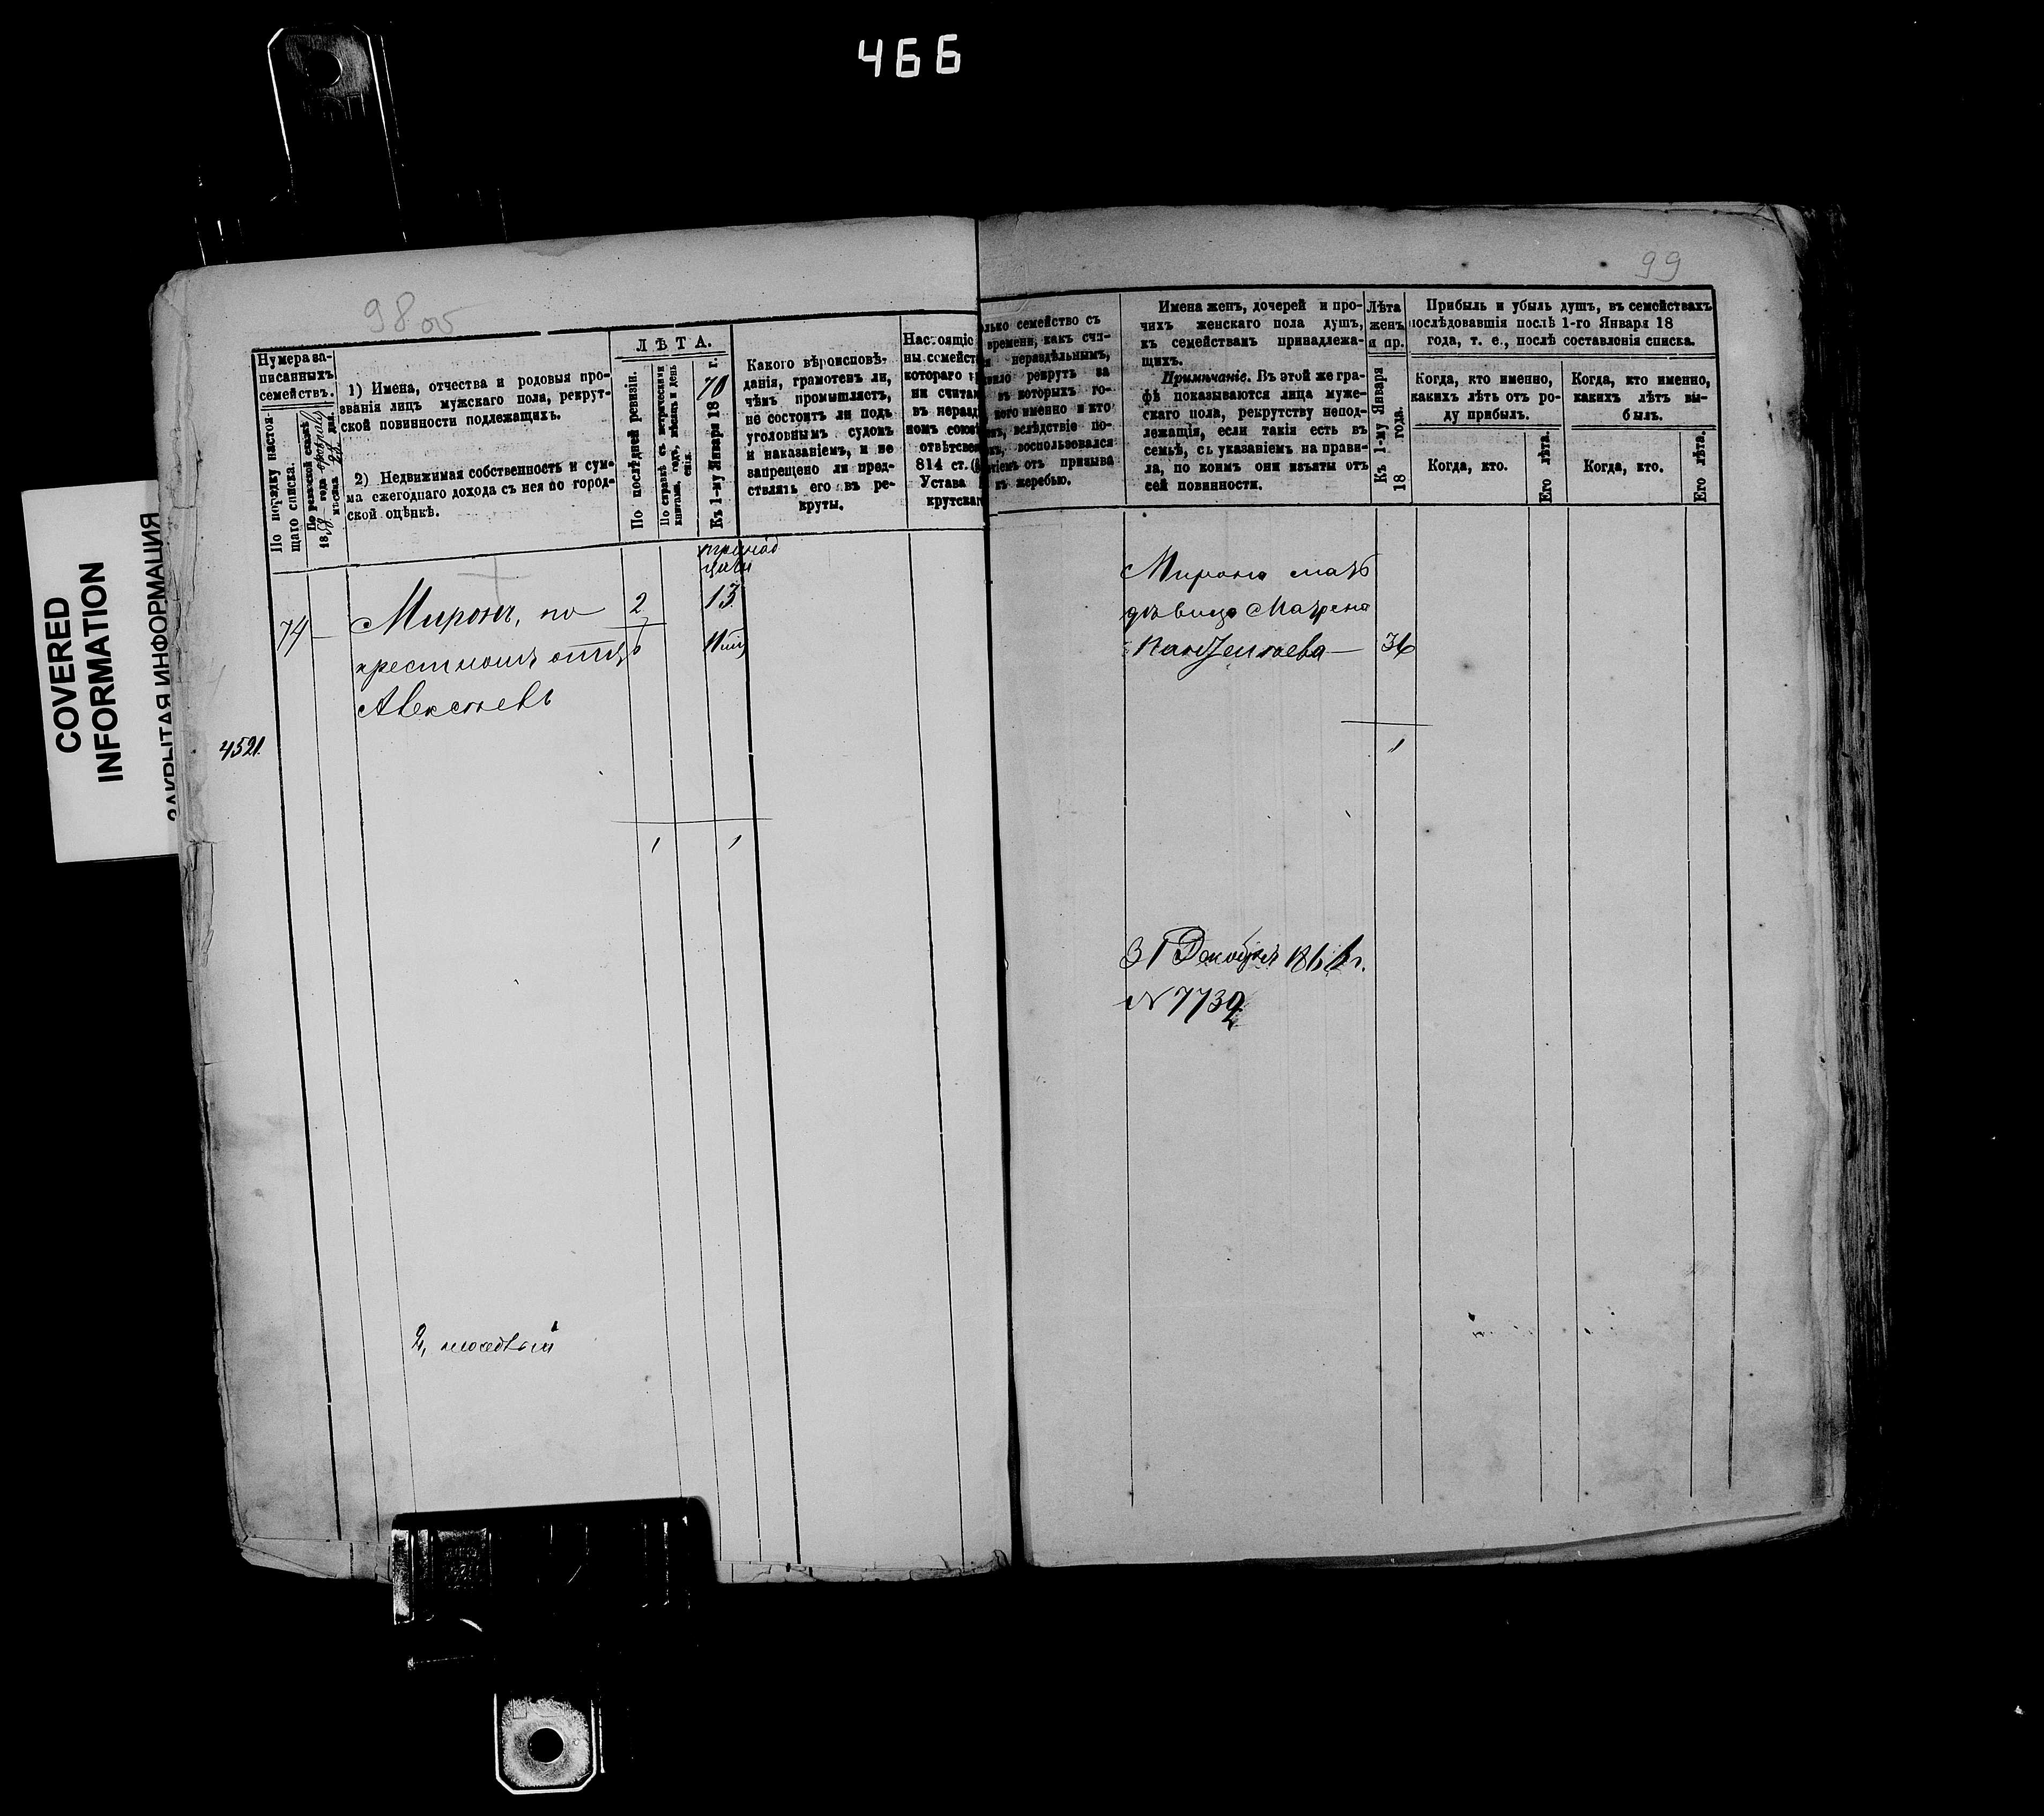 466
COVERED
INFORMATION
ЗАКРЫТАЯ ИНФОРМАЦИЯ
98 об
Нумера за-
писанныхъ
семействъ.
По порядку настоя-
щаго списка.
По ревизской сказкѣ
1858 года
мѣсяца дня.
1) Имена, отчества и родовыя про-
званія лицъ мужскаго пола, рекрут-
ской повинности подлежащихъ.
2) Недвижимая собственность и сум-
ма ежегоднаго дохода съ нея по город-
ской оцѣнкѣ.
ЛѢТА.
По послѣдней ревизіи.
По справкѣ съ метрическими
книгами, годъ, мѣсяцъ и день
Къ 1-му Января 1870 г.
Какого вѣроисповѣ-
данія, грамотенъ ли,
чѣмъ промышляетъ,
не состоитъ ли подъ
уголовнымъ судомъ
и наказаніемъ, и не
запрещено ли пред-
ствлять его въ ре-
круты.
Настоящіе
ны семейст
котораго
ни счита
въ неразд
номъ союз
отвѣтсвен
814 ст.
Устава
крутскаг
74 — Миронъ, по
крестномъ отцѣ
Алексѣевъ
2
13
4521.
1 1
99
олько семейство съ
времени, какъ счи-
нераздѣльнымъ,
рекрутъ за
въ которыхъ го-
кого именно и кто
вслѣдствіе по-
воспользовался
отъ призыва
къ жеребью.
Имена женъ, дочерей и про-
чихъ женскаго пола душъ,
къ семействамъ принадлежа-
щихъ.
Примѣчаніе. Въ этой же гра-
фѣ показываются лица муже-
скаго пола, рекрутству непод-
лежащія, если такія есть въ
семьѣ, съ указаніемъ на прави-
ла, по коимъ они изъяты отъ
сей повинности.
Лѣта
женъ
и пр.
Къ 1-му Января
18 года.
Прибыль и убыль душъ, въ семействахъ
послѣдовавшія послѣ 1-го Января 18
года, т. е., послѣ составленія списка.
Когда, кто именно,
какихъ лѣтъ отъ ро-
ду прибылъ.
Когда, кто именно,
какихъ лѣтъ вы-
былъ.
Когда, кто.
Его лѣта.
Когда, кто.
Его лѣта.
Мирона мать
дѣвица Матрена
36
1
31 Декабря 186 г.
N 7732